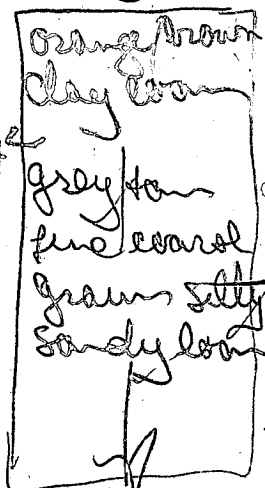 orange/brown
clay loam
grey/tan
fine/coarse
grain silty
sandy loam